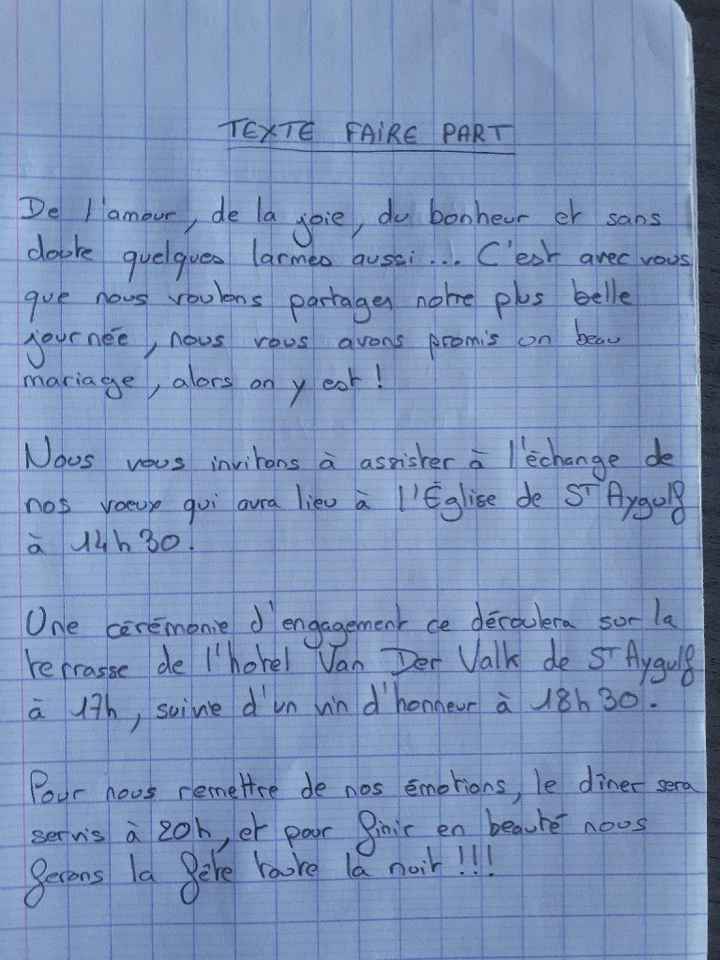 TEXTE FAIRE PART
De l'amour, de la joie, du bonheur et sans
doute quelques larmes aussi... C'est avec vous
que nous voulons partager notre plus belle
journée, nous vous avons promis un beau
mariage, alors on y est !
Nous vous invitons à assister à l'échange de
nos voeux qui aura lieu à l'Église de ST Aygulf
à 14h30.
Une cérémonie d'engagement ce déroulera sur la
terrasse de l'hotel Van Der Valk de ST Aygulf
à 17h, suivie d'un vin d'honneur à 18h30.
Pour nous remettre de nos émotions, le dîner sera
servis à 20h, et pour finir en beauté nous
ferons la fête toute la nuit !!!